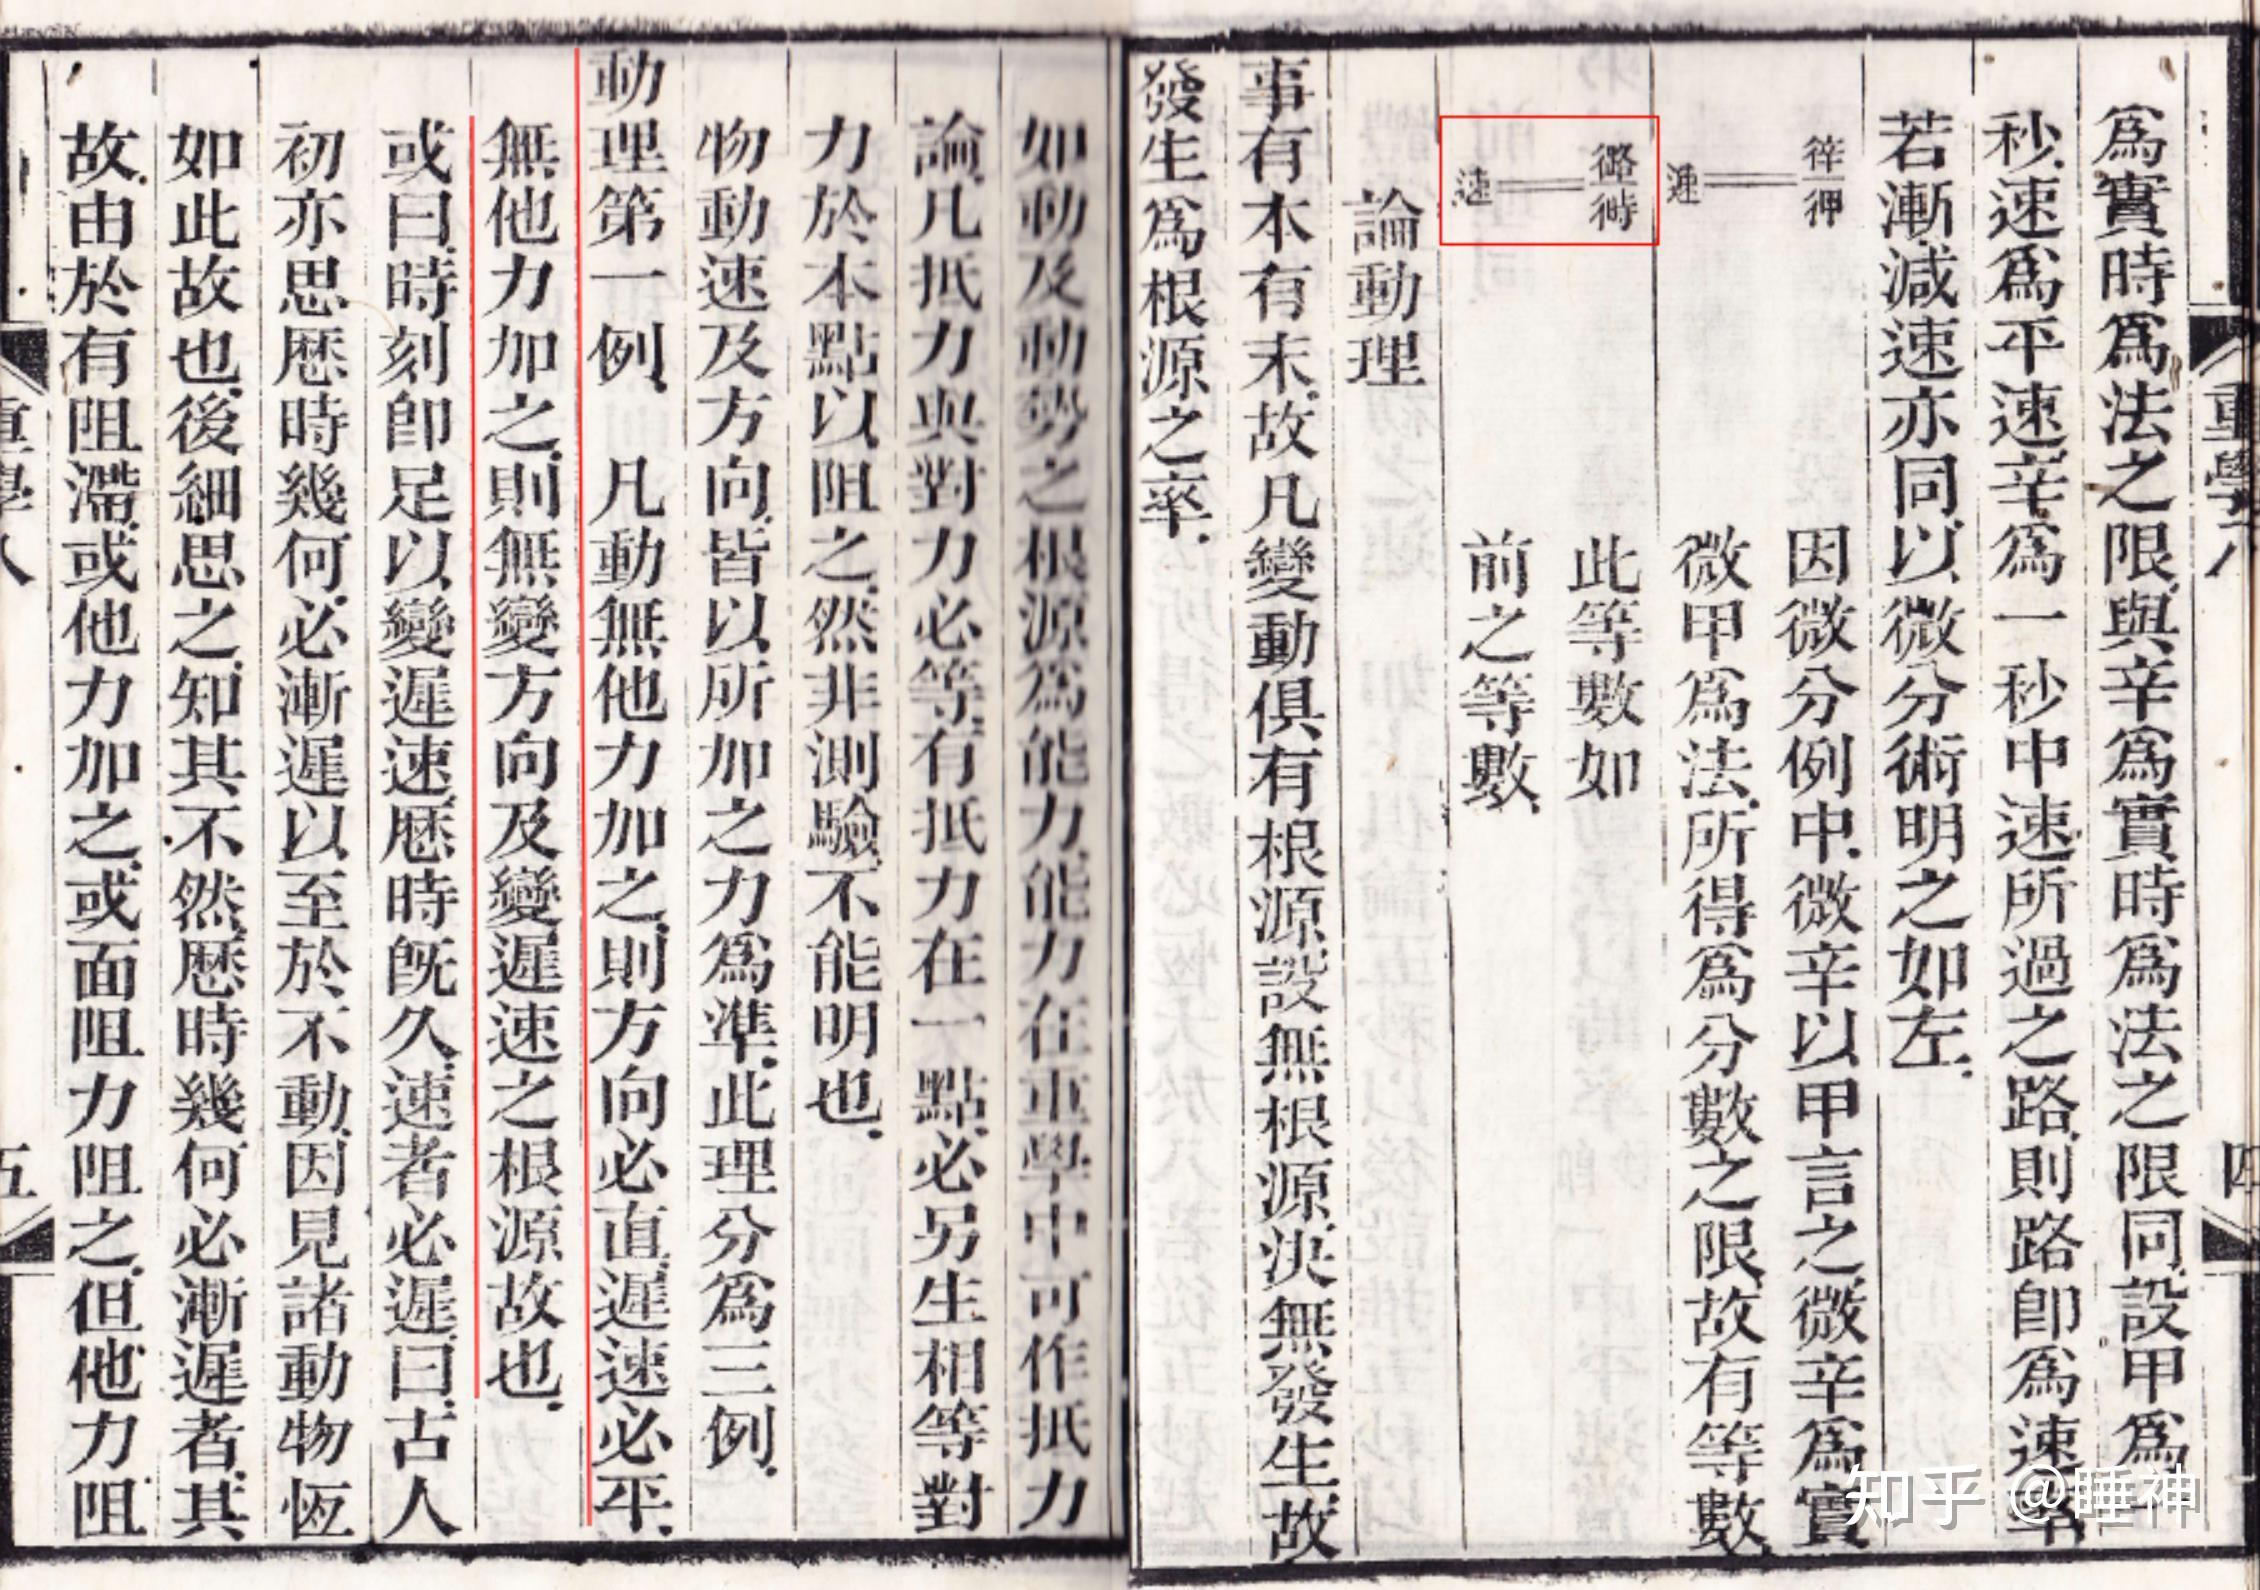 爲實時爲法之限、與辛爲實時爲法之限同、設甲爲一
秒、速爲平速、辛爲一秒中速所過之路、則路卽爲速
若漸減速亦同、以微分術明之如左、
因微分例中、微辛以甲言之、微辛爲實
微甲爲法、所得爲分數之限、故有等數
此等數如
速
前之等數、
論動理
事有本有末、故凡變動俱有根源、設無根源、決無發生、故
發生爲根源之率、
重學八
四
如動及動勢之根源爲能力、能力在重學中可作抵力
論、凡抵力與對力必等、有抵力在一點、必另生相等對
力於本點以阻之、然非測驗、不能明也、
物動速及方向、皆以所加之力爲準、此理分爲三例、
動理第一例、 凡動無他力加之、則方向必直、遲速必平、
無他力加之、則無變方向及變遲速之根源故也、
或曰、時刻卽足以變遲速、歷時旣久、速者必遲、曰、古人
初亦思歷時幾何、必漸遲以至於不動、因見諸動物恆
如此故也、後細思之、知其不然、歷時幾何必漸遲者、其
故、由於有阻滯、或他力加之、或面阻力阻之、但他力阻
重學八
五
知乎 @睡神